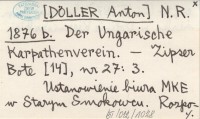 [DÖLLER Anton] N.R.
1876 b. Der Ungarische
Karpathenverein. — Zipser
Bote [14], nr 27: 3.
Ustanowienie biura MKE
w Starym Smokowcu. Rozpo-